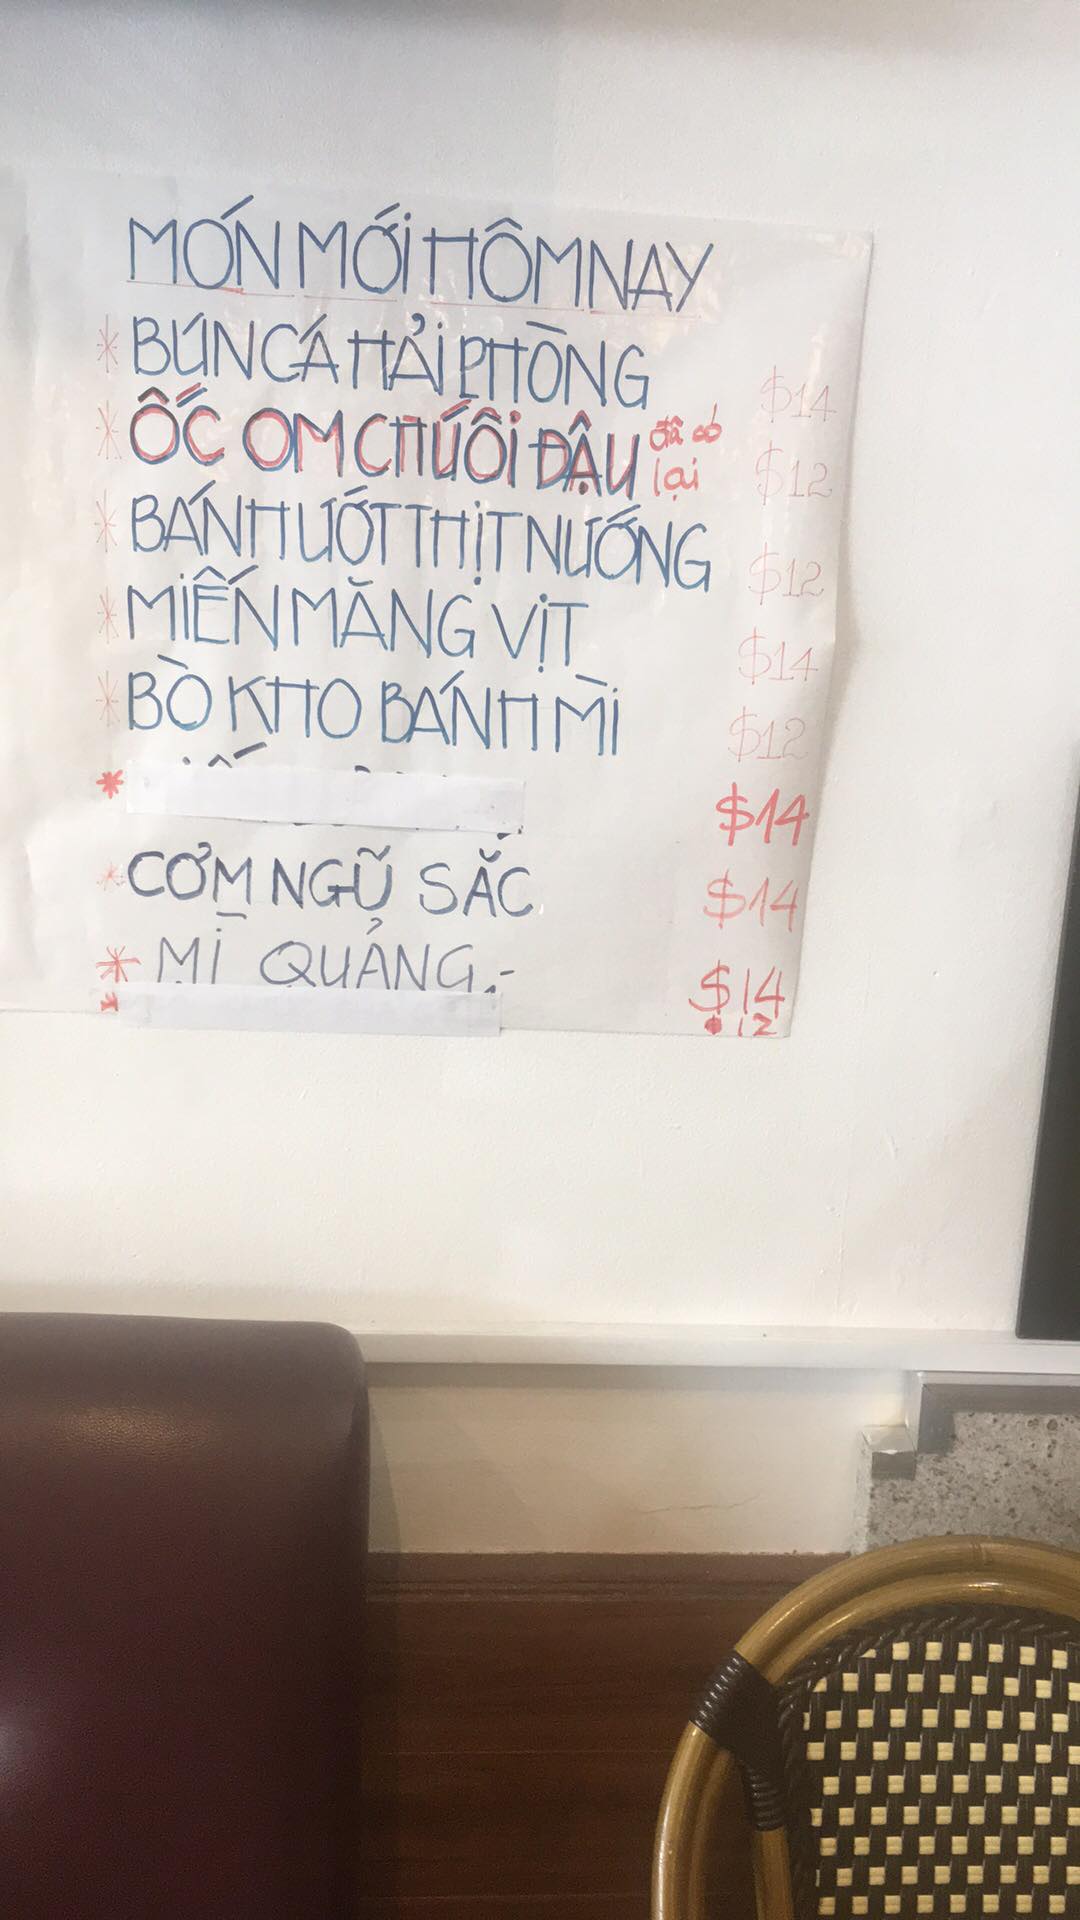 MÓN MỚI HÔM NAY
* BÚN CÁ HẢI PHÒNG $14
* ỐC OM CHUỐI ĐẬU đã có lại $12
* BÁNH ƯỚT THỊT NƯỚNG $12
* MIẾN MĂNG VỊT $14
* BÒ KHO BÁNH MÌ $12
* $14
* CƠM NGŨ SẮC $14
* MÌ QUẢNG.- $14
* $12